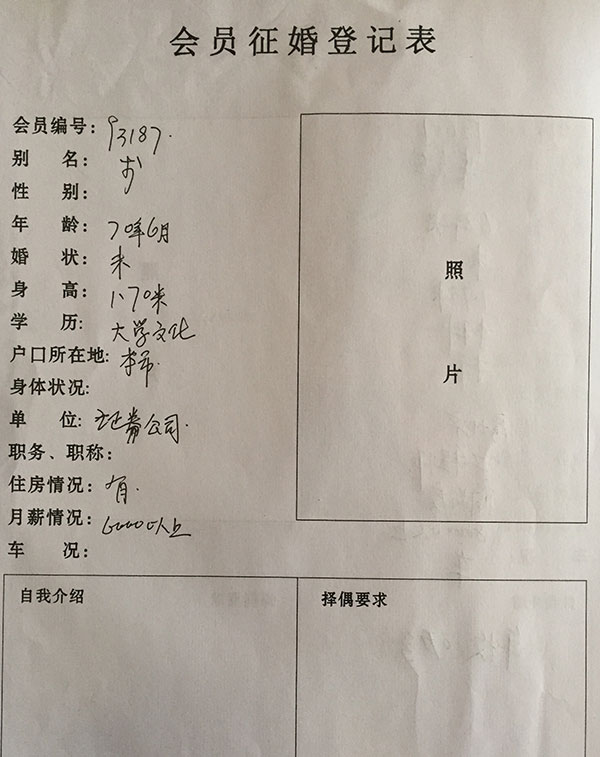 会员征婚登记表
会员编号: 93187.
别 名:
性 别:
年 龄: 70年6月
婚 状: 未
身 高: 1.70米
学 历: 大学文化
户口所在地: 本市.
身体状况:
单 位: 证券公司.
职务、职称:
住房情况: 有.
月薪情况: 60000以上
车 况:
照
片
自我介绍
择偶要求